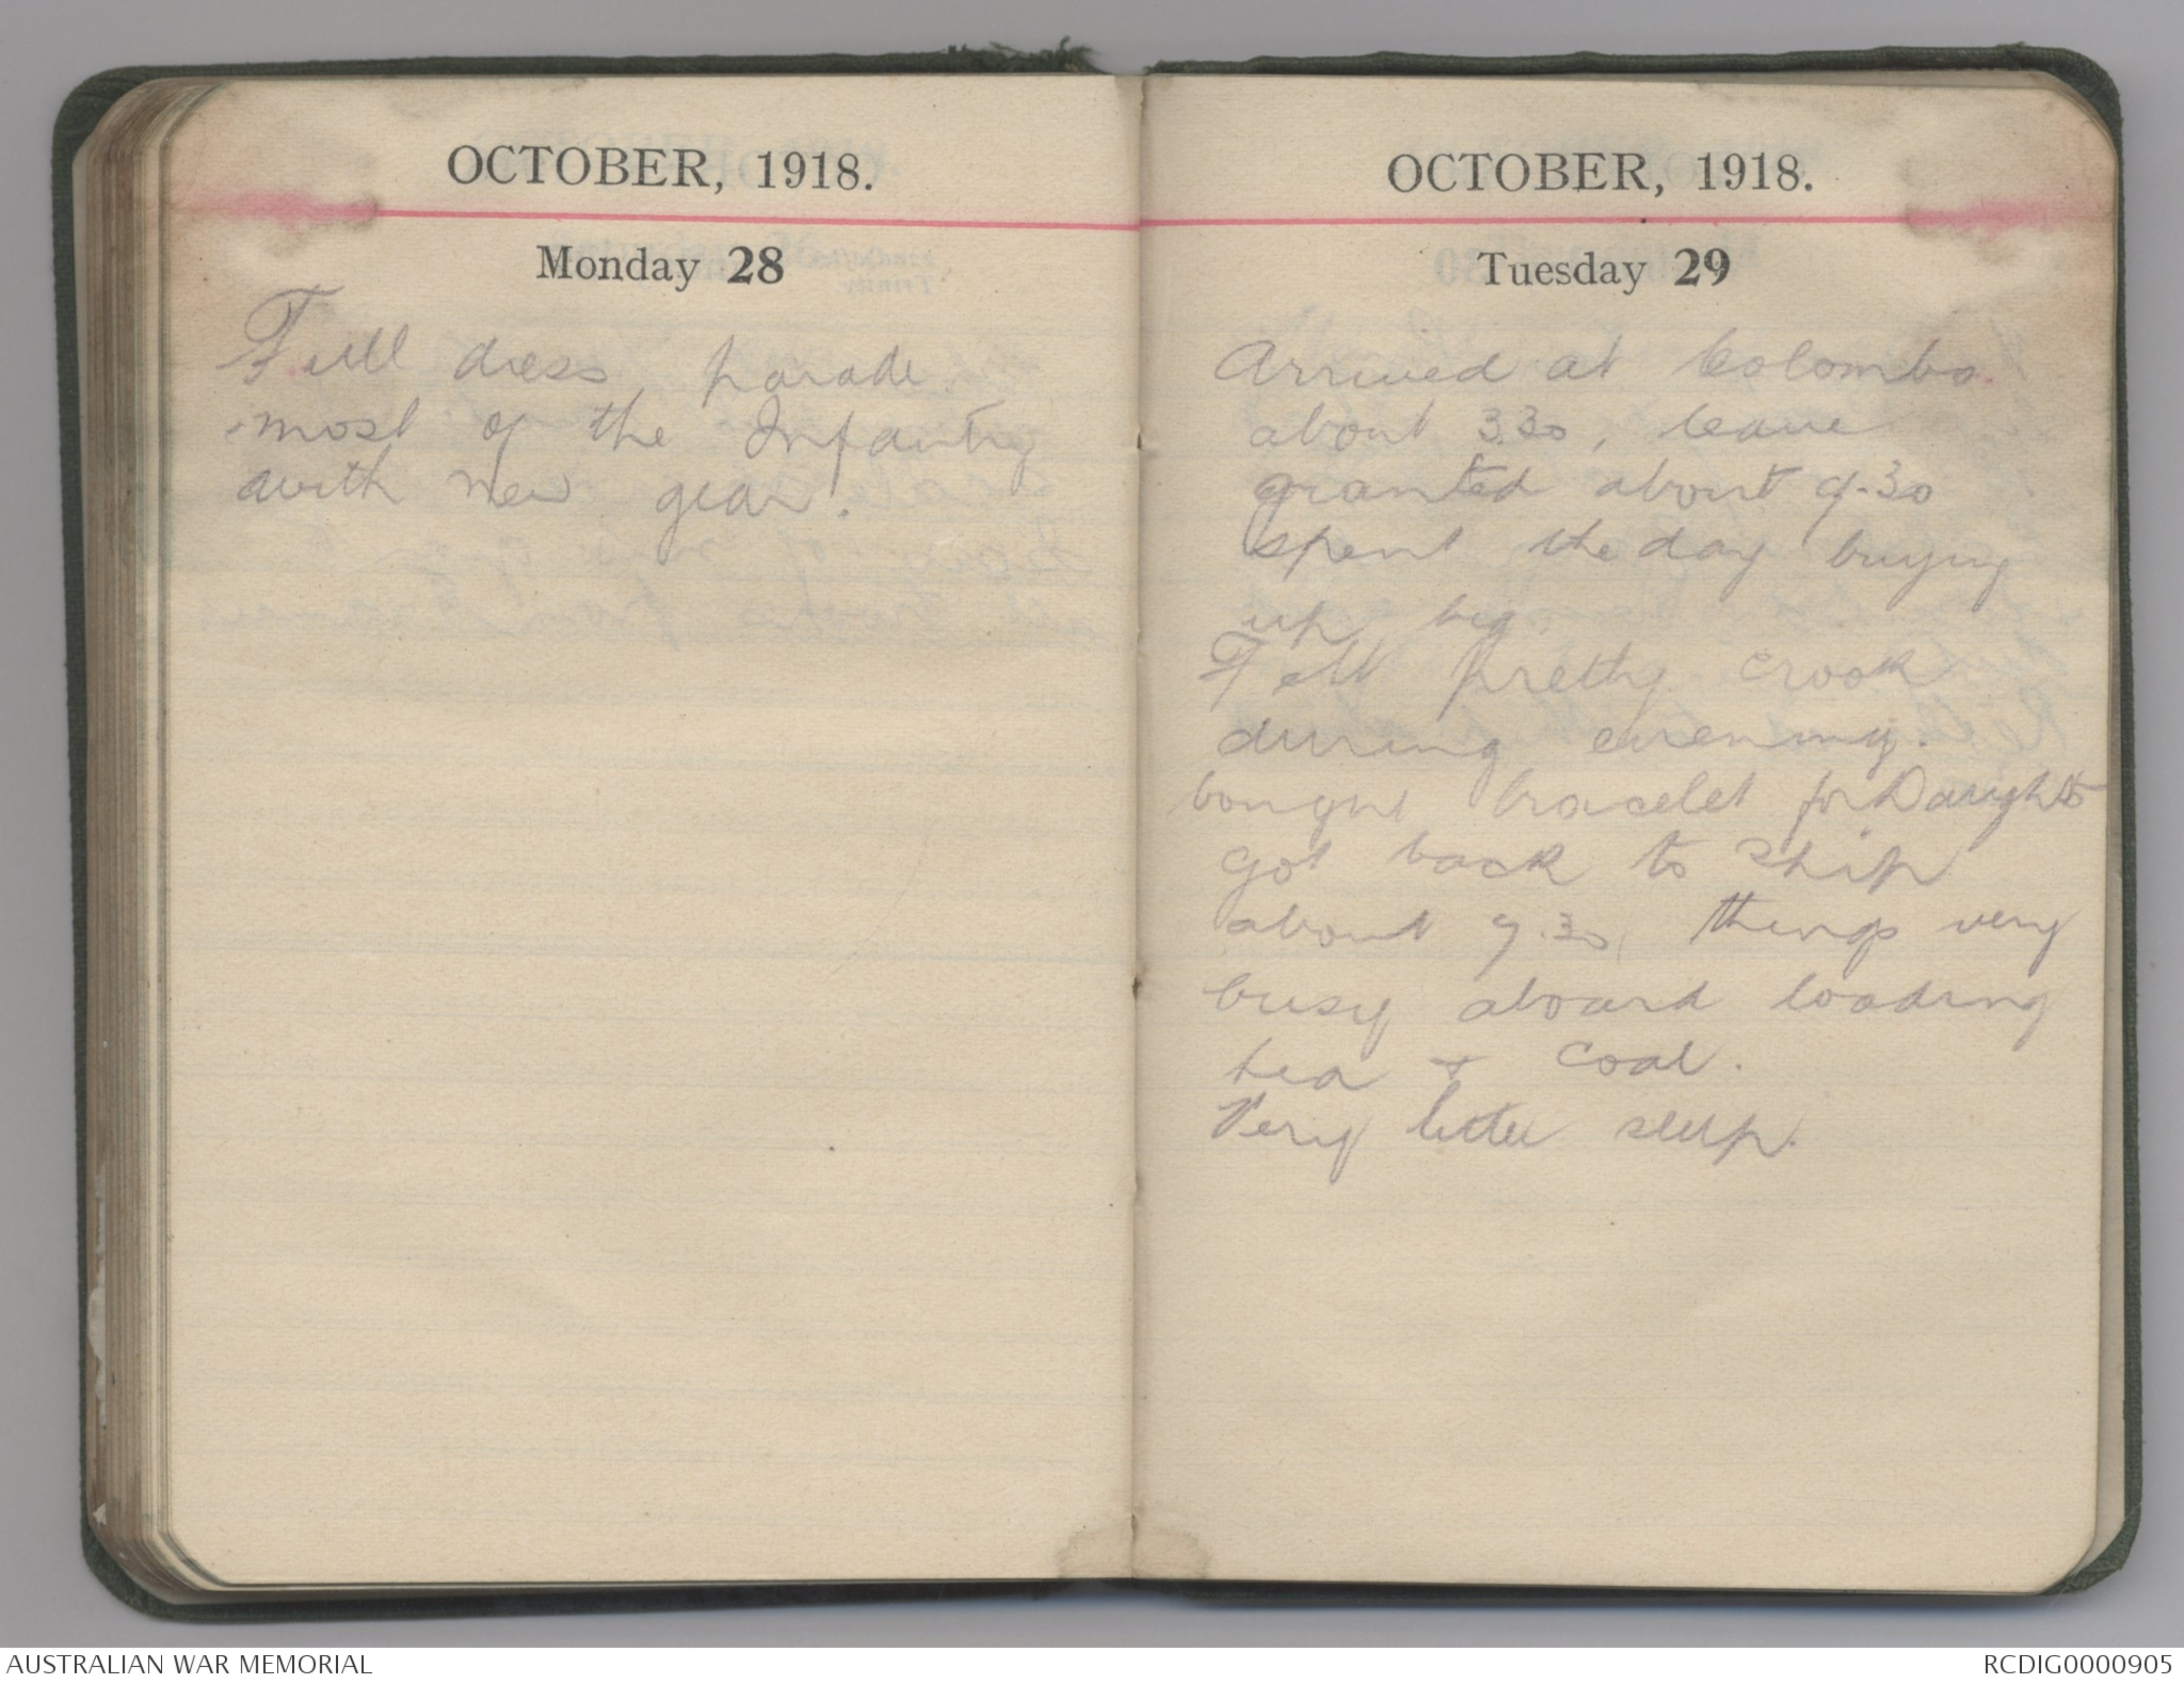 OCTOBER, 1918.
Monday 28
Full dress parade
most of the Infantry
with new gear.
OCTOBER, 1918.
Tuesday 29
Arrived at Colombo
about 3.30, leave
granted about 9.30
spent the day buying
up big.
Felt pretty crook
during evening.
bought bracelet for
got back to ship
about 9.30, things very
busy aboard loading
tea & coal.
Very little sleep.
AUSTRALIAN WAR MEMORIAL
RCDIG0000905